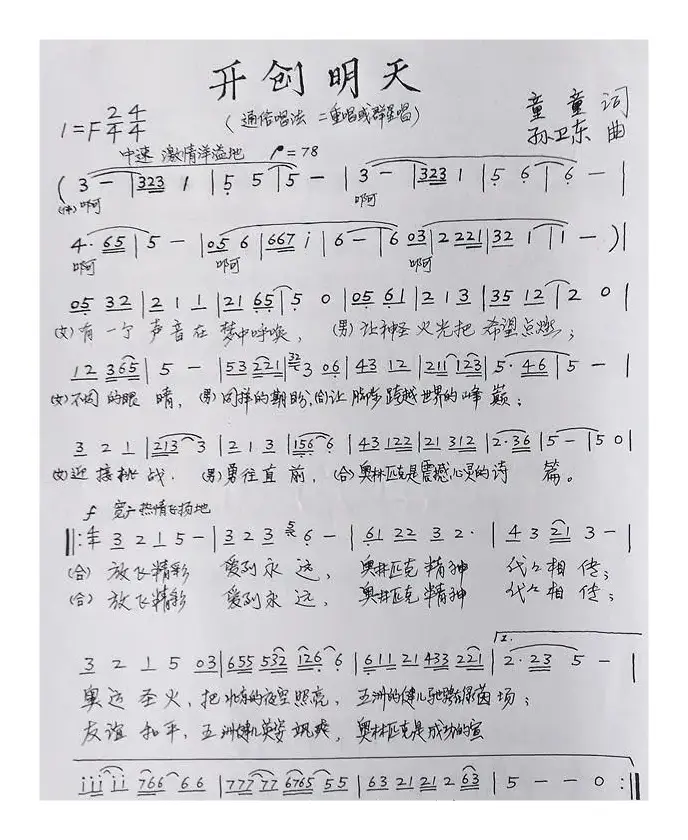 开创明天
(通俗唱法 二重唱或群星唱)
童童 词
孙卫东 曲
1=F 2/4 4/4
中速 激情洋溢地 ♩=78
( 3 - | 323 1 | 5 5 | 5 - | 3 - | 323 1 | 5 6 | 6 - |
(伴)啊 啊
4· 65 | 5 - | 05 6 | 667 i | 6 - | 6 03 | 2 221 | 32 1 | 1 - ) |
啊 啊 啊
05 32 | 2 1 1 | 21 65 | 5 0 | 05 61 | 2 1 3 | 35 12 | 2 0 |
(女)有一个 声音在 梦中呼唤, (男)让神圣火光把 希望点燃;
12 365 | 5 - | 53 221 | 32 3 06 | 43 12 | 211 123 | 5· 46 | 5 - |
(女)不同的眼 睛, (男)同样的期盼,(合)让 脚步跨越世界的峰 巅;
3 2 1 | 213 3 | 2 1 3 | 156 6 | 43 122 | 21 312 | 2·36 | 5 - | 5 0 |
(女)迎接挑战. (男)勇往直前, (合)奥林匹克是震撼心灵的诗 篇。
f 宽广热情飞扬地
‖: 4/4 3 2 1 5 - | 3 2 3 5 6 - | 61 22 3 2· | 4 3 21 3 - |
(合) 放飞精彩 爱到永 远, 奥林匹克精神 代々相传;
(合) 放飞精彩 爱到永 远, 奥林匹克精神 代々相传;
3 2 1 5 03 | 655 532 126 6 | 611 21 433 221 | 2· 23 5 - |
奥运圣火,把北京的夜空照亮, 五洲的健儿驰骋在绿茵场;
友谊和平,五洲健儿英姿飒爽, 奥林匹克是成功的宣
iii ii 766 66 | 777 77 6765 55 | 63 21 21 2 63 | 5 - - 0 :‖